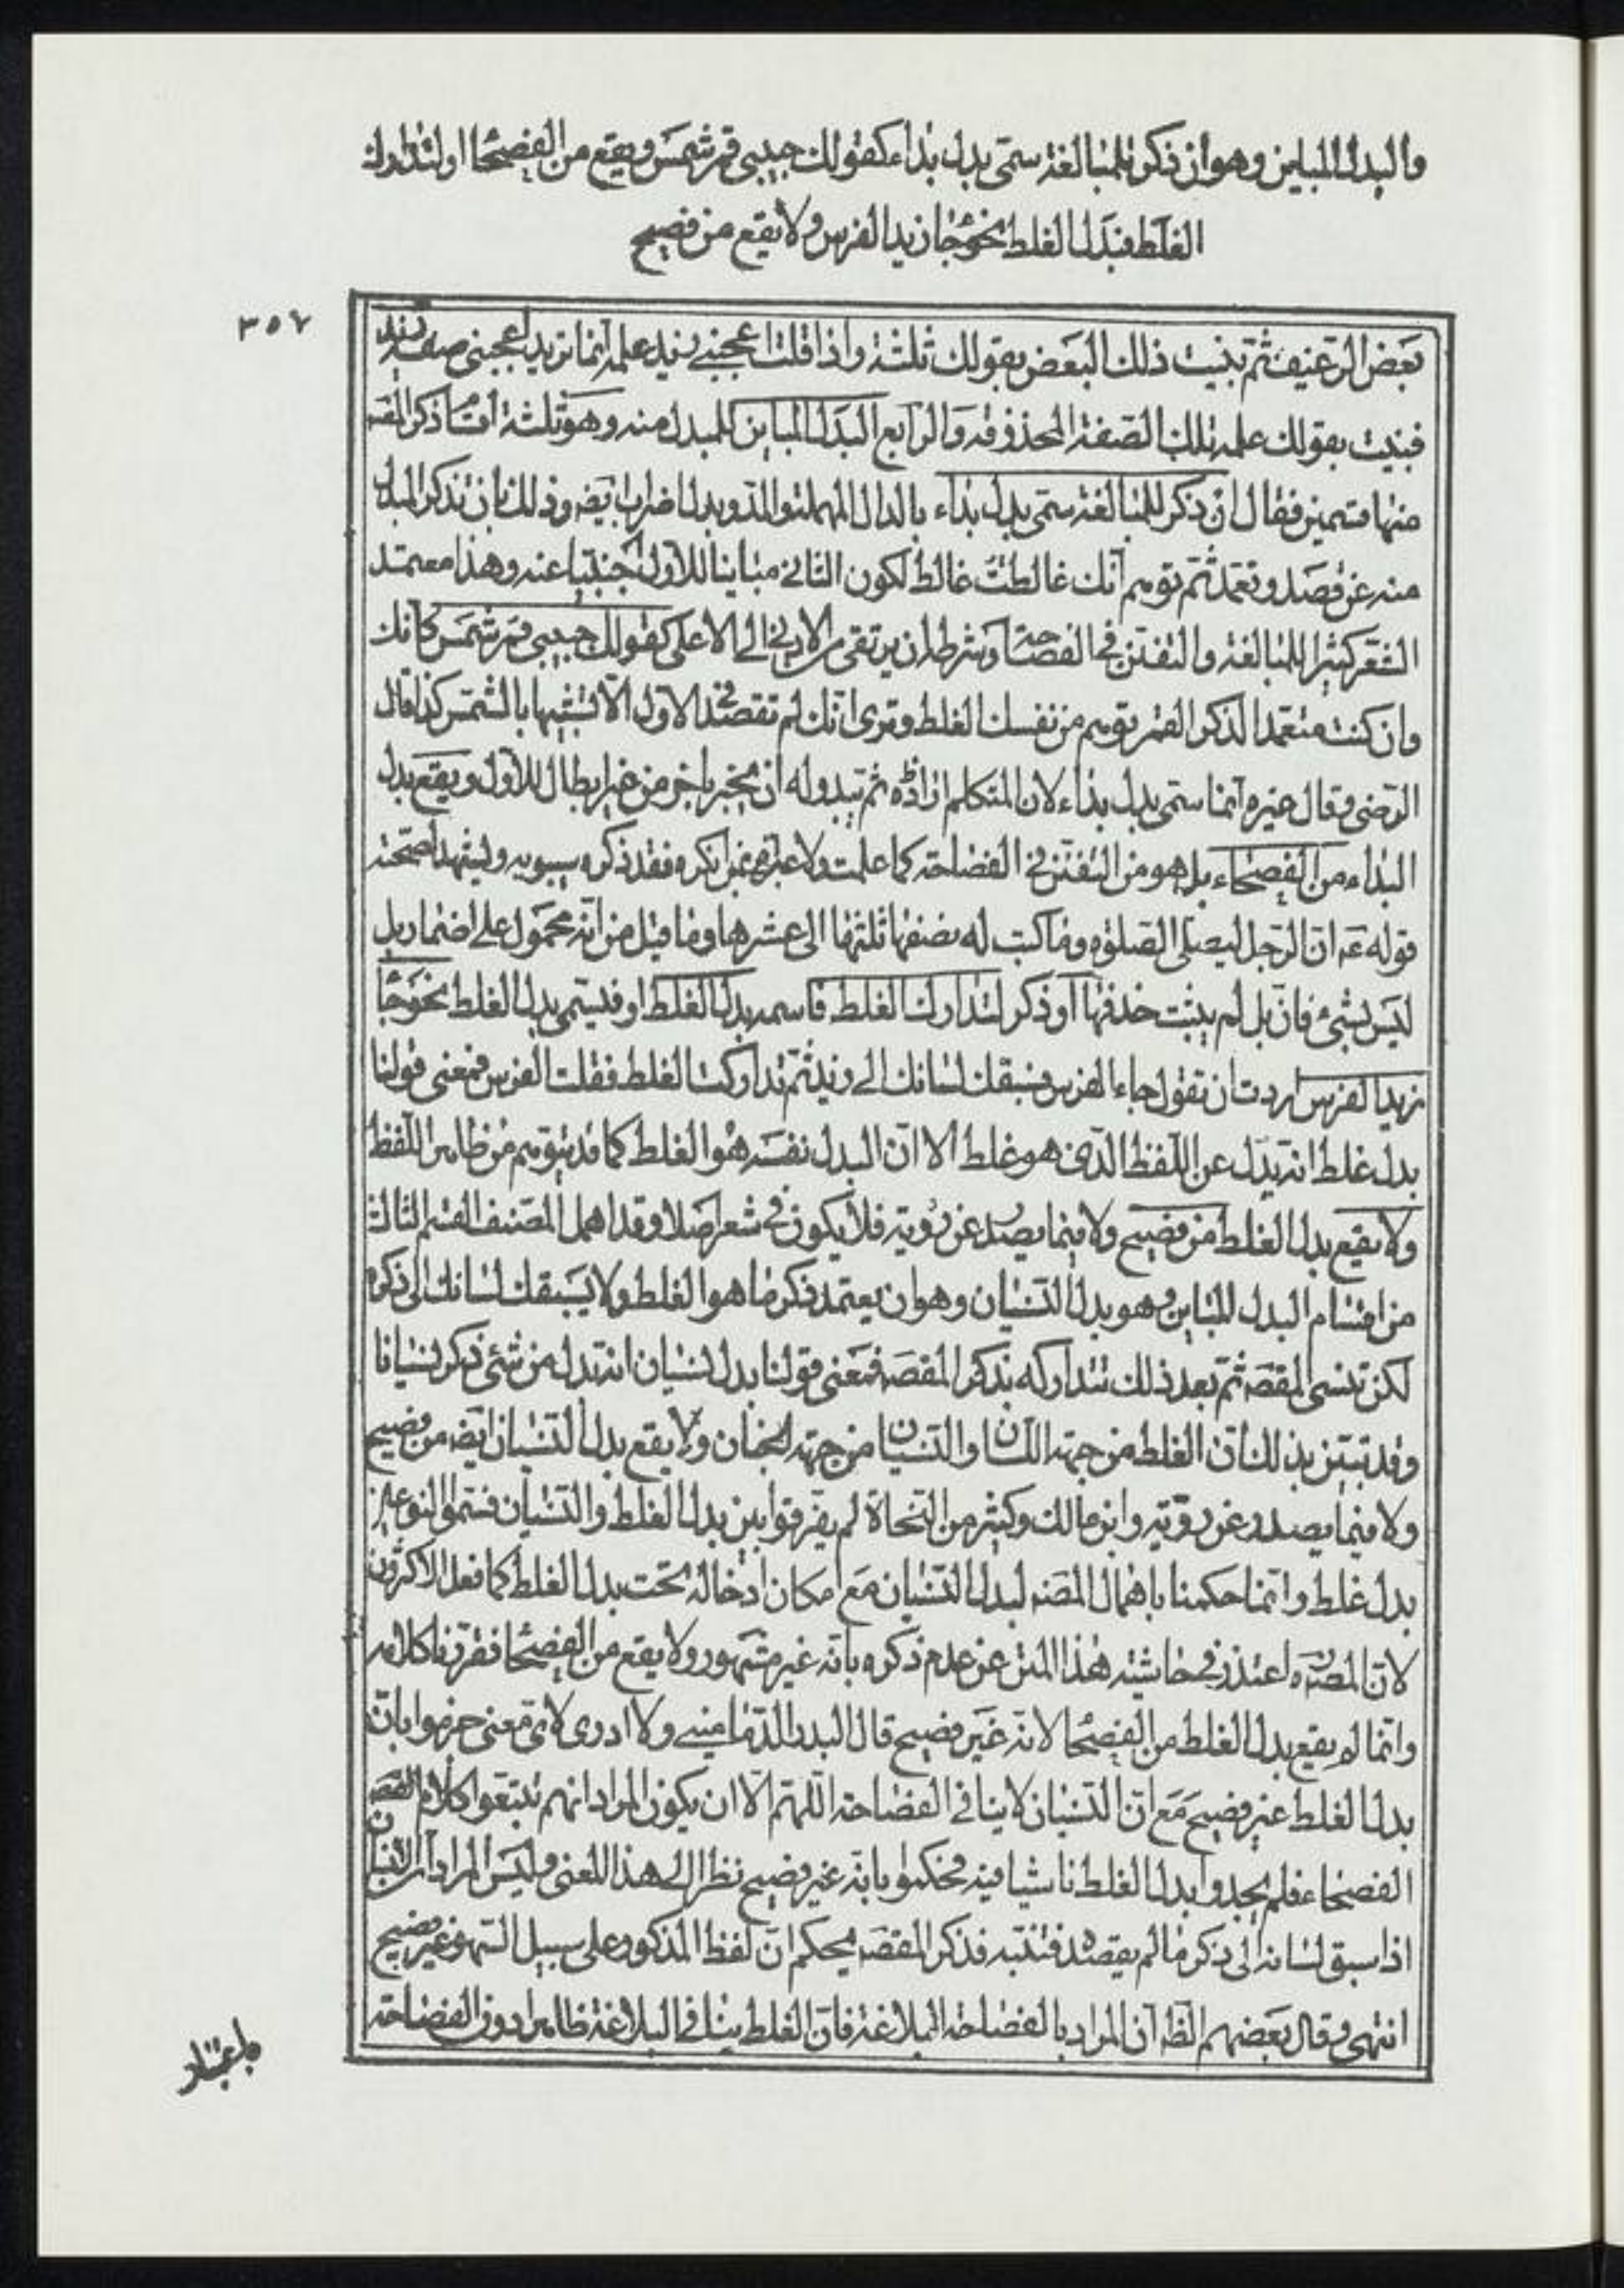 والبدل المباين وهو ان ذكر للمبالغة سمّى بدل بداء كقولك حبيبى قمر شمس ويقع من الفصحا او لتدارك
الغلط فبدل الغلط نحو جا زيد الفرس ولا يقع من فصيح
٣٥٧
بعض الرغيف ثم بيّنت ذلك البعض بقولك ثلثة واذا قلت اعجبنى زيد علمه انما تريد اعجبنى صفة زيد
فبينت بقولك علمه تلك الصفة المحذوفة والرابع البدل المباين للمبدل منه وهو ثلثة اقسام ذكر المصـ
منها قسمين فقال ان ذكر للمبالغة سمّى بدل بداء بالدال المهملة والمد وبدل اضراب ايضـ وذلك بان تذكر المبدل
منه عن قصد وتعمّد ثم توهم انك غالط لكون الثانى مباينا للاول اجنبيا عنه وهذا معتمد
الشعر كثيرا للمبالغة والتفنن فى الفصاحة وشرطه ان يرتقى من الادنى الى الاعلى كقولك حبيبى قمر شمس كانك
وان كنت متعمدا لذكر القمر توهم من نفسك الغلط وترى انك لم تقصد فى الاول الا تشبيها بالشمس كذا قال
الرضى وقال غيره انما سمى بدل بداء لان المتكلم اراده ثم يبدو له ان يخبر باخر من غير ابطال للاول ويقع بدل
البداء من الفصحاء بل هو من التفنن فى الفصاحة كما علمت ولا عبرة بمن انكره فقد ذكره سيبويه وليشهد لصحته
قوله عمـ ان الرجل ليصلى الصلوة وما كتب له نصفها ثلثها الى عشرها وما قيل من انه محمول على اضمار بل
ليس بشئ فان بل لم يثبت حذفها او ذكر لتدارك الغلط فاسمه بدل الغلط او فليسمى بدل الغلط نحو جا
زيد الفرس اردت ان تقول جاء الفرس فسبقك لسانك الى زيد ثم تداركت الغلط فقلت الفرس فمعنى قولنا
بدل غلط انه بدل عن اللفظ الذى هو غلط لا ان البدل نفسه هو الغلط كما قد يتوهم من ظاهر اللفظ
ولا يقع بدل الغلط من فصيح ولا فيما يصدر عن روية فلا يكون فى شعر اصلا وقد اهمل المصنف القسم الثالث
من اقسام البدل المباين وهو بدل النسيان وهو ان يعتمد ذكر ما هو الغلط ولا يسبقك لسانك الى ذكره
لكن تنسى المقصـ ثم بعد ذلك تتداركه بذكر المقصـ فمعنى قولنا بدل نسيان انه بدل من شئ ذكر نسيانا
وقد تبين بذلك ان الغلط من جهة اللسان والنسيان من جهة الجنان ولا يقع بدل النسيان ايضـ من فصيح
ولا فيما يصدر عن روية وابن مالك وكثير من النحاة لم يفرقوا بين بدل الغلط والنسيان فسمّوا النوعين
بدل غلط وانما حكمنا باهمال المصنـ لبدل النسيان مع امكان ادخاله تحت بدل الغلط كما فعل الاكثرون
لان المصـ ره اعتذر فى حاشية هذا المتن عن عدم ذكره بانه غير مشهور ولا يقع من الفصحا فقررنا كلامه
وانما لم يقع بدل الغلط من الفصحا لانه غير فصيح قال البدر الدمامينى ولا ادرى لاى معنى جزموا بان
بدل الغلط غير فصيح مع ان النسيان لا ينافى الفصاحة اللهم الا ان يكون المراد انهم تتبعوا كلام
الفصحاء فلم يجدوا بدل الغلط ناشيا فيه فحكموا بانه غير فصيح نظرا الى هذا المعنى وليس المراد ان الانسان
اذا سبق لسانه الى ذكر ما لم يقصده فتنبه فذكر المقصـ يحكم ان لفظ المذكور على سبيل السهو غير فصيح
انتهى وقال بعضهم الظـ ان المراد بالفصاحة البلاغة فان الغلط ينافى البلاغة ظاهرا دون الفصاحة
باعتبار